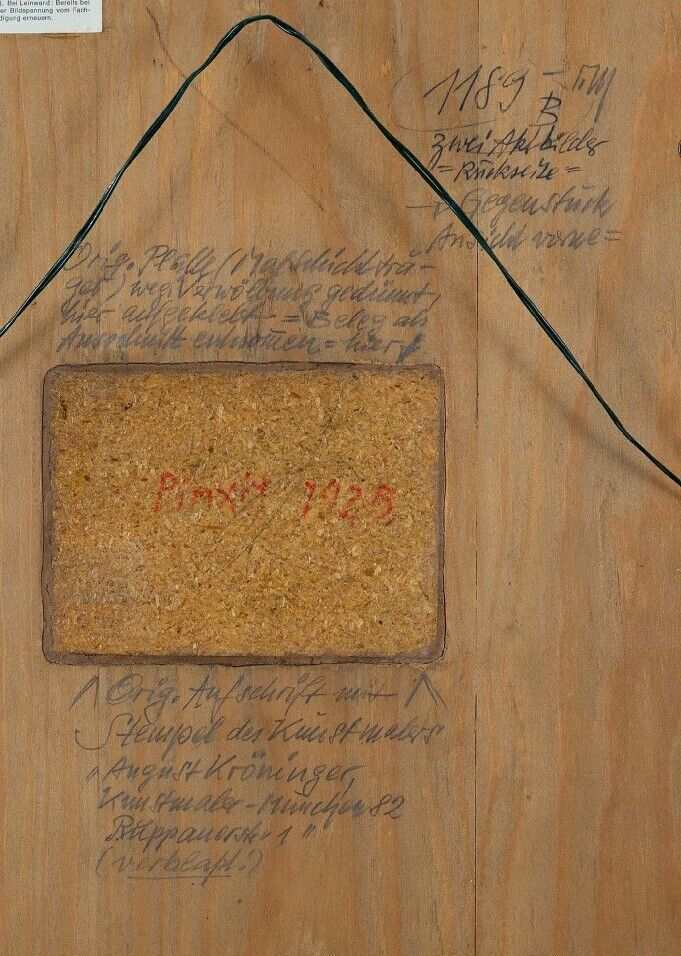 ). Bei Leinwand: Bereits bei
er Bildspannung vom Fach-
digung erneuern.
1189 -
B
zwei Aktbilder
= Rückseite =
→ Gegenstück
Ansicht vorne =
Orig. Platte (Malschichtträ-
ger) weg. Verwölbung gedünnt,
hier aufgeklebt = Beleg als
Ausschnitt entnommen = hier ↓
Pinxit 1928
↑ Orig. Aufschrift mit ↑
Stempel des Kunstmalers
"August Kröninger,
Kunstmaler - München 82
1"
(verblaßt.)